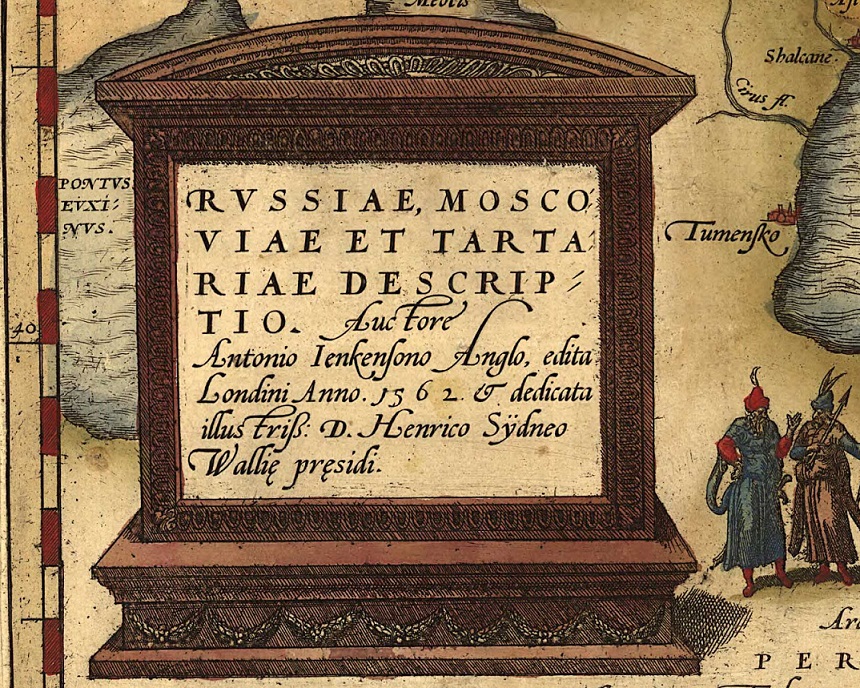 Meotis
Shalcane
Cirus fl.
PONTVS
EVXI⸗
NVS.
RVSSIAE, MOSCO⸗
VIAE ET TARTA⸗
RIAE DESCRIP⸗
TIO. Auctore
Antonio Ienkensono Anglo, edita
Londini Anno. 1562. & dedicata
illustriß: D. Henrico Sÿdneo
Wallię pręsidi.
Tumensko
40
PER